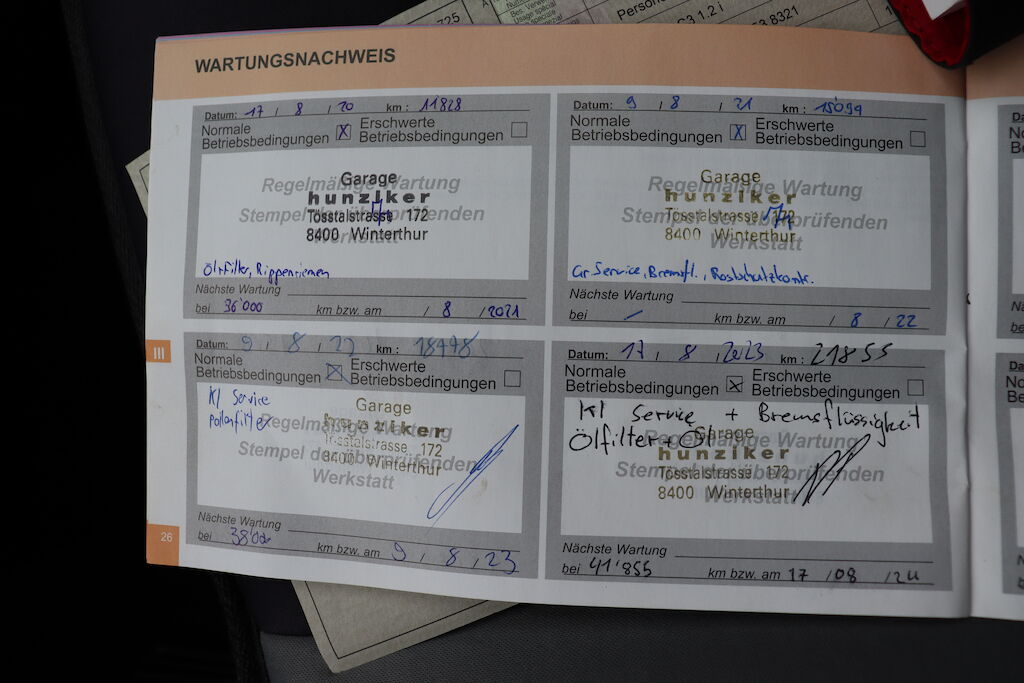 725
Bes. Verw
Usage spécial
Person
C3 1.2 i
3 8321
WARTUNGSNACHWEIS
Datum: 17 / 8 / 20 km : 11828
Normale
Betriebsbedingungen X
Erschwerte
Betriebsbedingungen
Regelmäßige Wartung
Stempel der überprüfenden
Werkstatt
Garage
hunziker
Tösstalstrasse 172
8400 Winterthur
Ölfilter, Rippenriemen
Nächste Wartung
bei 36'000 km bzw. am / 8 / 2021
Datum: 9 / 8 / 21 km : 15094
Normale
Betriebsbedingungen X
Erschwerte
Betriebsbedingungen
Regelmäßige Wartung
Stempel der überprüfenden
Werkstatt
Garage
hunziker
Tösstalstrasse 172
8400 Winterthur
Gr Service, Bremsfl., Rostschutzkontr.
Nächste Wartung
bei – km bzw. am / 8 / 22
III
Datum: 9 / 8 / 22 km : 18478
Normale
Betriebsbedingungen X
Erschwerte
Betriebsbedingungen
Kl Service
Pollenfilter
Regelmäßige Wartung
Stempel der überprüfenden
Werkstatt
Garage
hunziker
Tösstalstrasse 172
8400 Winterthur
Nächste Wartung
bei km bzw. am 9 / 8 / 23
Datum: 17 / 8 / 2023 km : 21855
Normale
Betriebsbedingungen X
Erschwerte
Betriebsbedingungen
Kl Service + Bremsflüssigkeit
Ölfilter + Öl
Regelmäßige Wartung
Stempel der überprüfenden
Werkstatt
Garage
hunziker
Tösstalstrasse 172
8400 Winterthur
Nächste Wartung
bei 41'855 km bzw. am 17 / 08 / 24
26